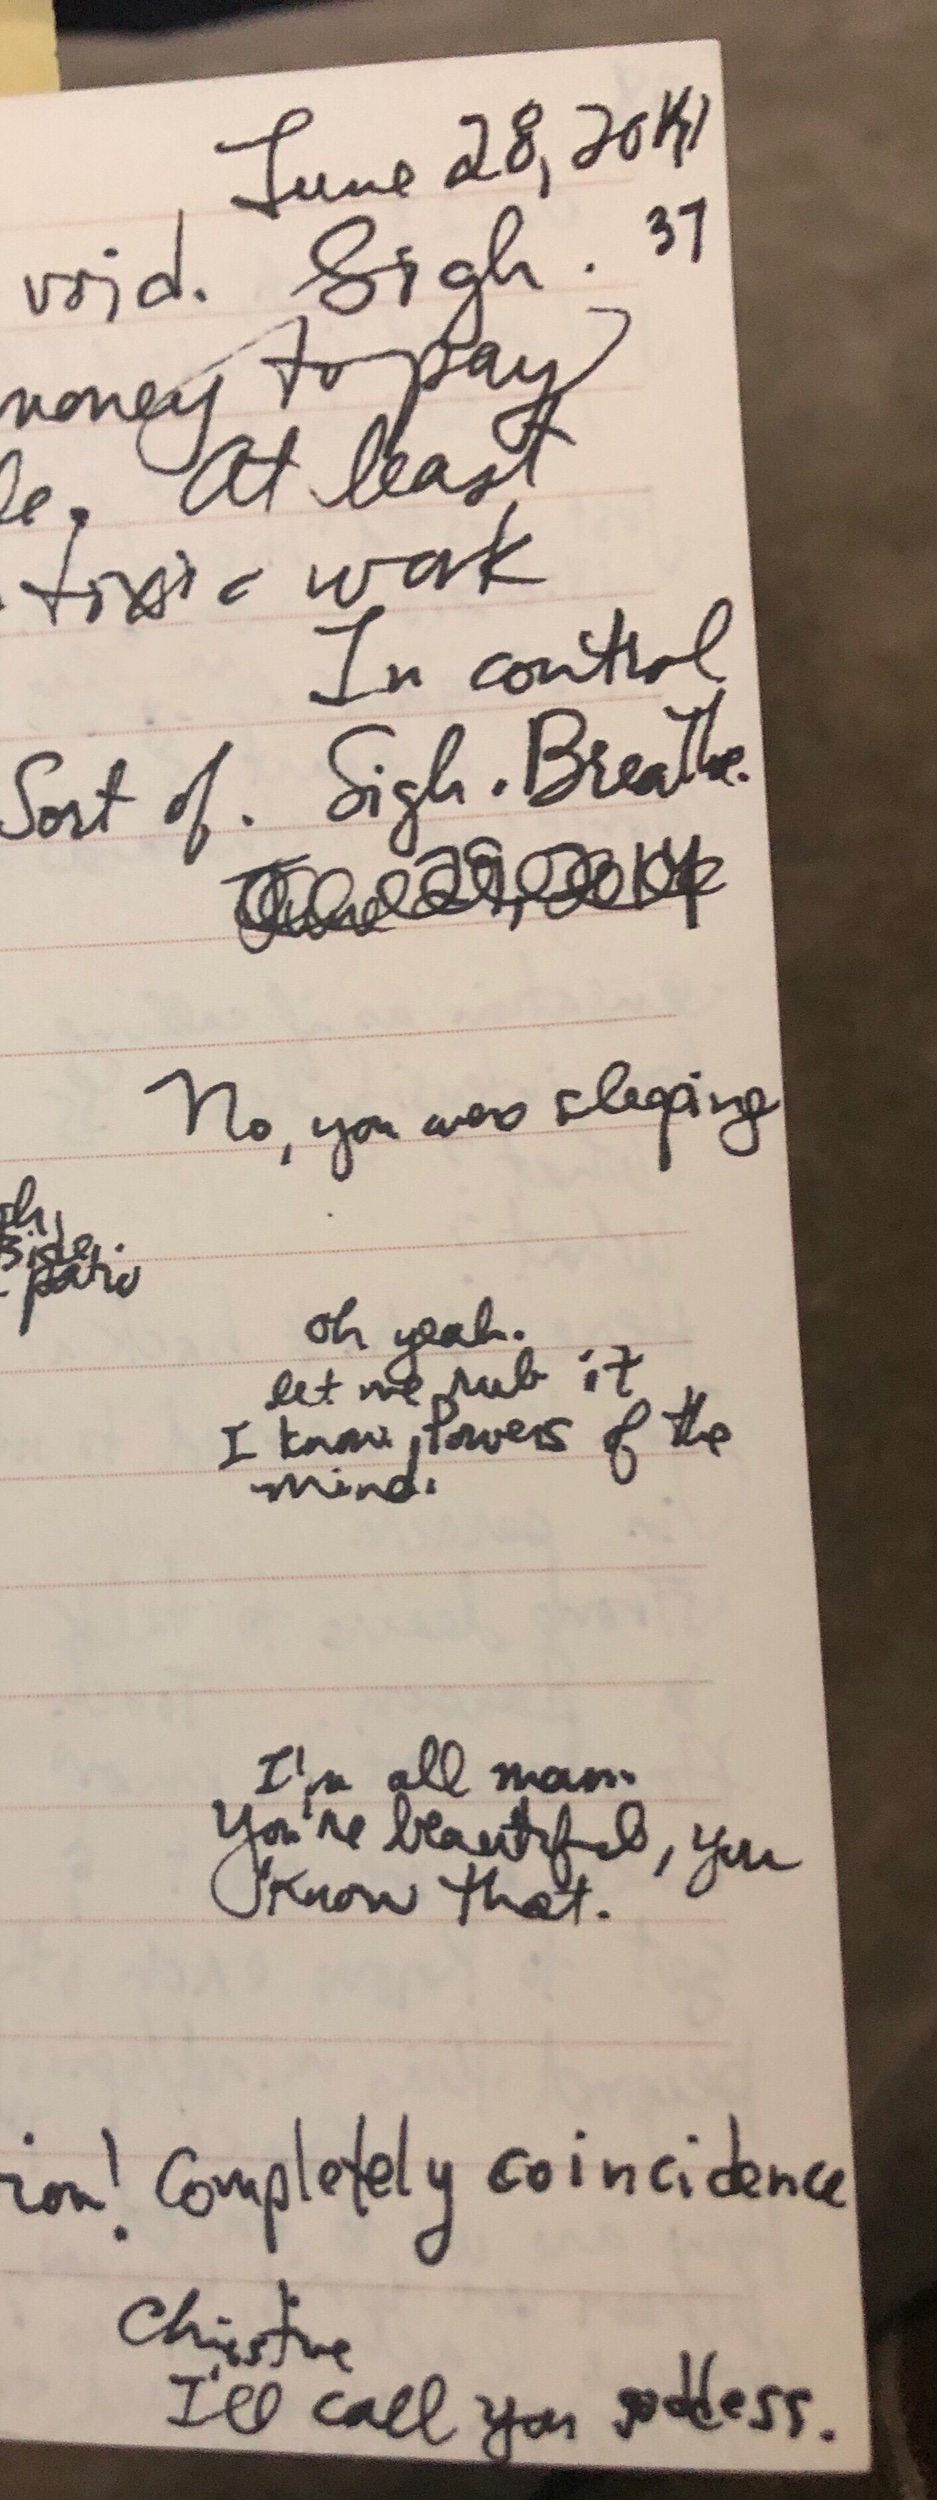 June 28, 2014
37
void. Sigh.
money to pay
le. At least
toxic work
In control
Sort of. Sigh. Breathe.
June 29, 2014
No, you were sleeping
oh,
side.
patio
oh yeah.
let me rub it
I know, Powers of the
mind.
I'm all man.
You're beautiful, you
know that.
ion! Completely coincidence
Christine
I'll call you goddess.